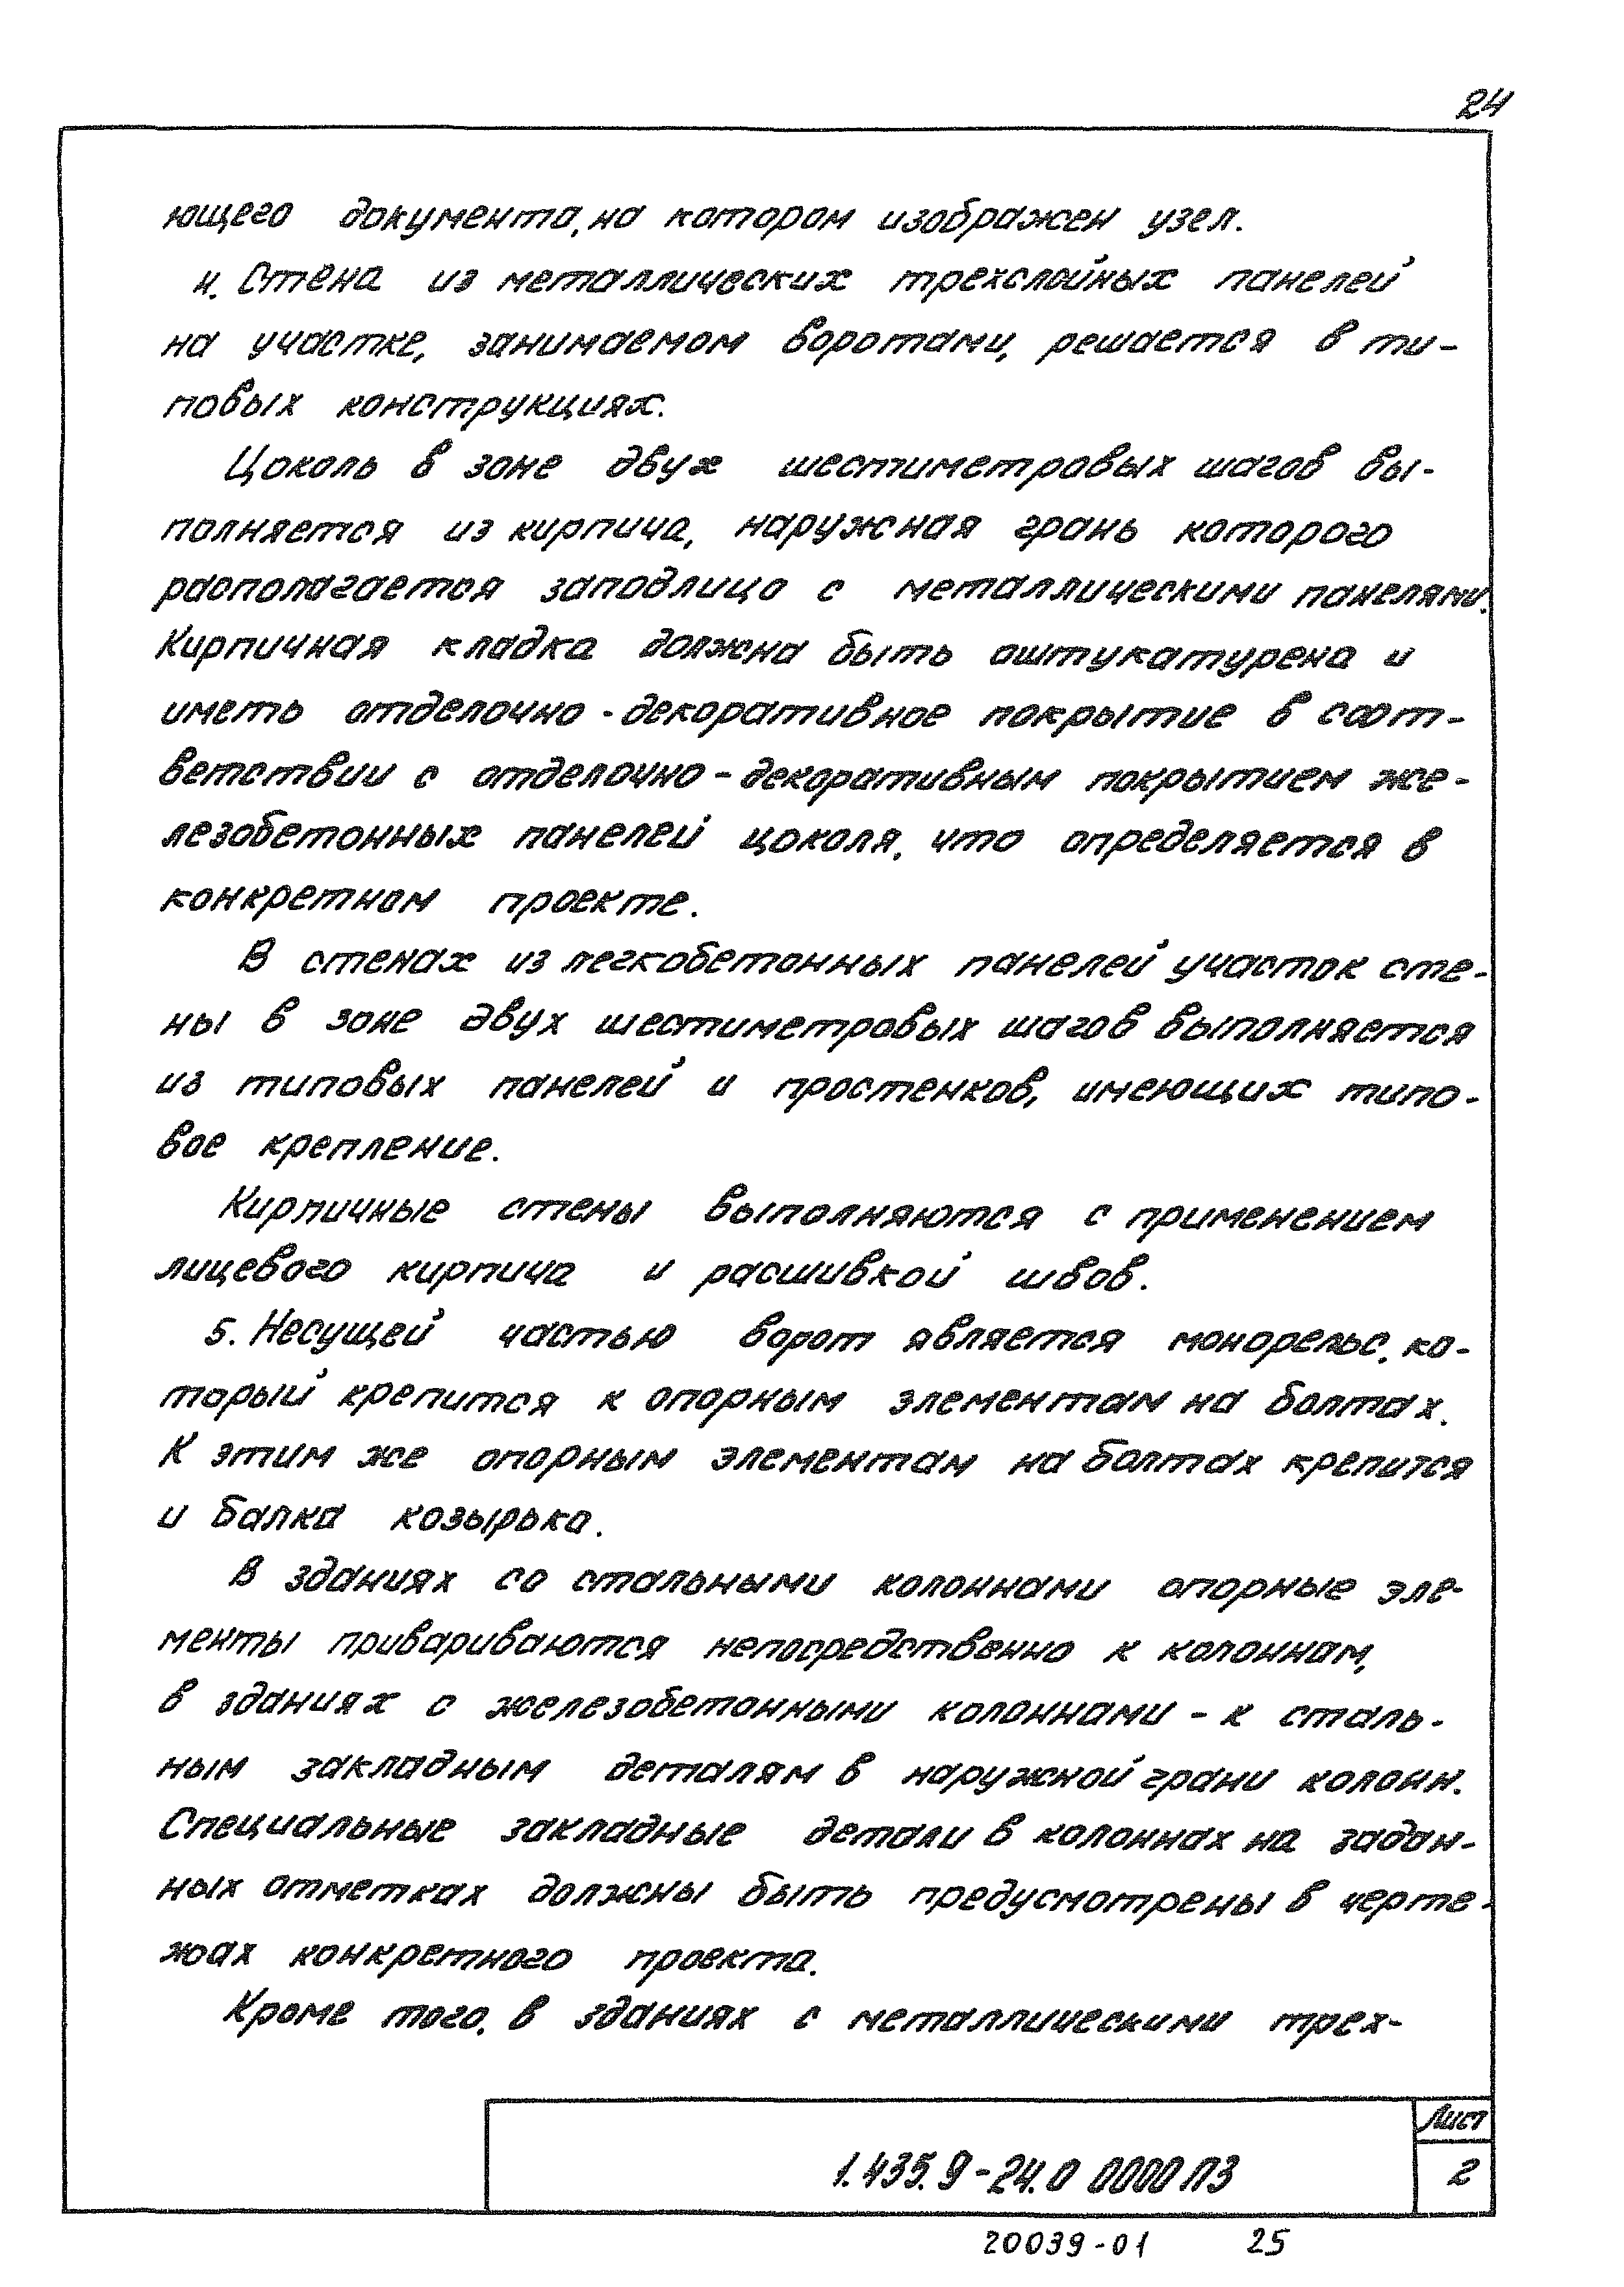 24
ющего документа, на котором изображен узел.
4. Стена из металлических трехслойных панелей
на участке, занимаемом воротами, решается в ти-
повых конструкциях.
Цоколь в зоне двух шестиметровых шагов вы-
полняется из кирпича, наружная грань которого
располагается заподлицо с металлическими панелями.
Кирпичная кладка должна быть оштукатурена и
иметь отделочно-декоративное покрытие в соот-
ветствии с отделочно-декоративным покрытием же-
лезобетонных панелей цоколя, что определяется в
конкретном проекте.
В стенах из легкобетонных панелей участок сте-
ны в зоне двух шестиметровых шагов выполняется
из типовых панелей и простенков, имеющих типо-
вое крепление.
Кирпичные стены выполняются с применением
лицевого кирпича и расшивкой швов.
5. Несущей частью ворот является монорельс, ко-
торый крепится к опорным элементам на болтах.
К этим же опорным элементам на болтах крепится
и балка козырька.
В зданиях со стальными колоннами опорные эле-
менты привариваются непосредственно к колоннам,
в зданиях с железобетонными колоннами - к сталь-
ным закладным деталям в наружной грани колонн.
Специальные закладные детали в колоннах на задан-
ных отметках должны быть предусмотрены в черте-
жах конкретного проекта.
Кроме того, в зданиях с металлическими трех-
Лист
1.435.9-24.0 0000 ПЗ
2
20039-01 25